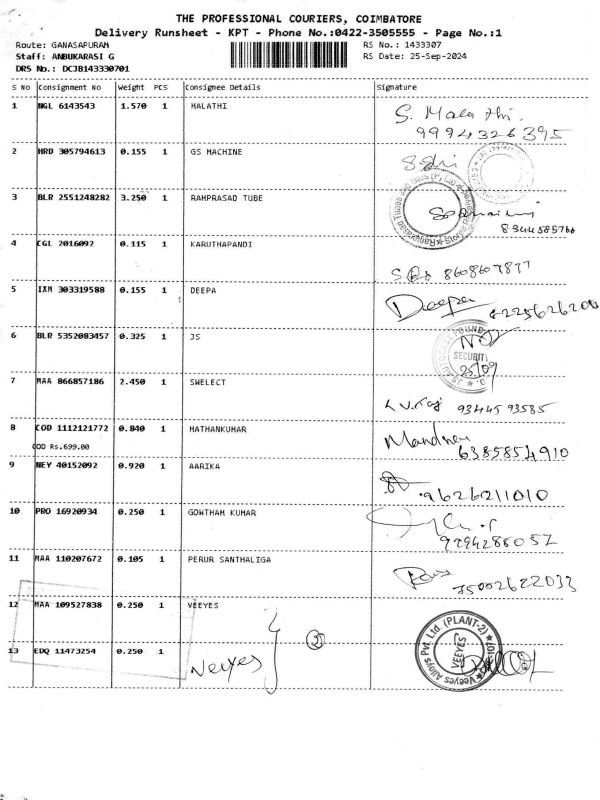 THE PROFESSIONAL COURIERS, COIMBATORE
Delivery Runsheet - KPT - Phone No.:0422-3505555 - Page No.:1
Route: GANASAPURAM RS No.: 1433307
Staff: ANBUKARASI G RS Date: 25-Sep-2024
DRS No.: DCJB143330701
S No Consignment No Weight PCS Consignee Details Signature
1 NGL 6143543 1.570 1 MALATHI S. Malathi.
9994326395
2 HRD 305794613 0.155 1 GS MACHINE
3 BLR 2551248282 3.250 1 RAMPRASAD TUBE
4 CGL 2016092 0.115 1 KARUTHAPANDI
8608607877
5 IXM 303319588 0.155 1 DEEPA Deepa
6 BLR 5352083457 0.325 1 JS
SECURITY
25/09
7 MAA 866857186 2.450 1 SWELECT
93445 93585
8 COD 1112121772 0.840 1 MATHANKUMAR
COD Rs.699.00 6385854910
9 NEY 40152092 0.920 1 AARIKA
9626211010
10 PRO 16920934 0.250 1 GOWTHAM KUMAR
11 MAA 110207672 0.105 1 PERUR SANTHALIGA
12 MAA 109527838 0.250 1 VEEYES
2
Veeyes Alloys Pvt. Ltd. (PLANT-2)
VEEYES
13 EDQ 11473254 0.250 1 Veeyes